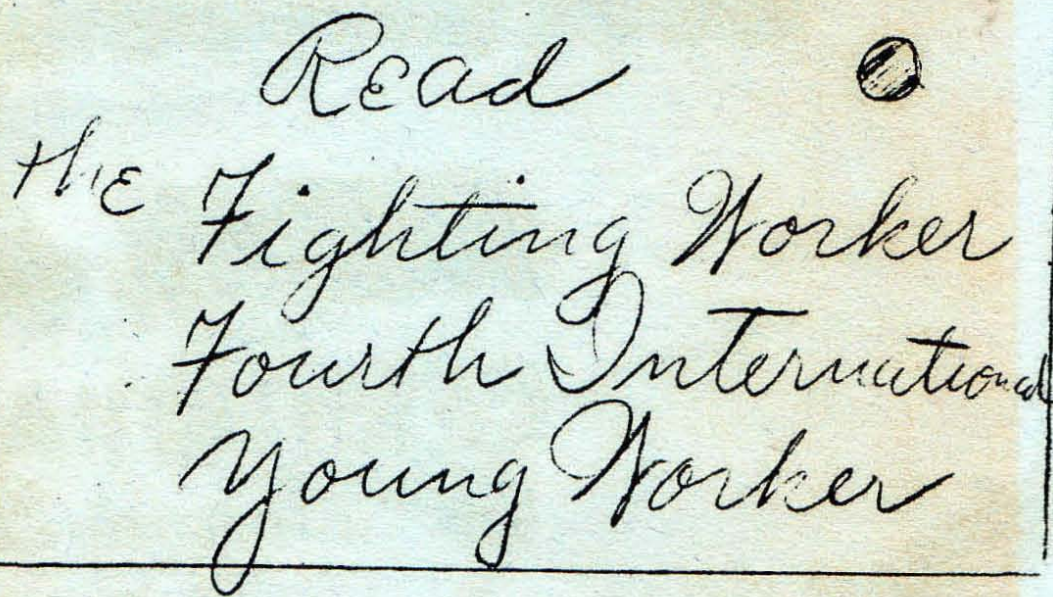 Read
the Fighting Worker
Fourth International
Young Worker